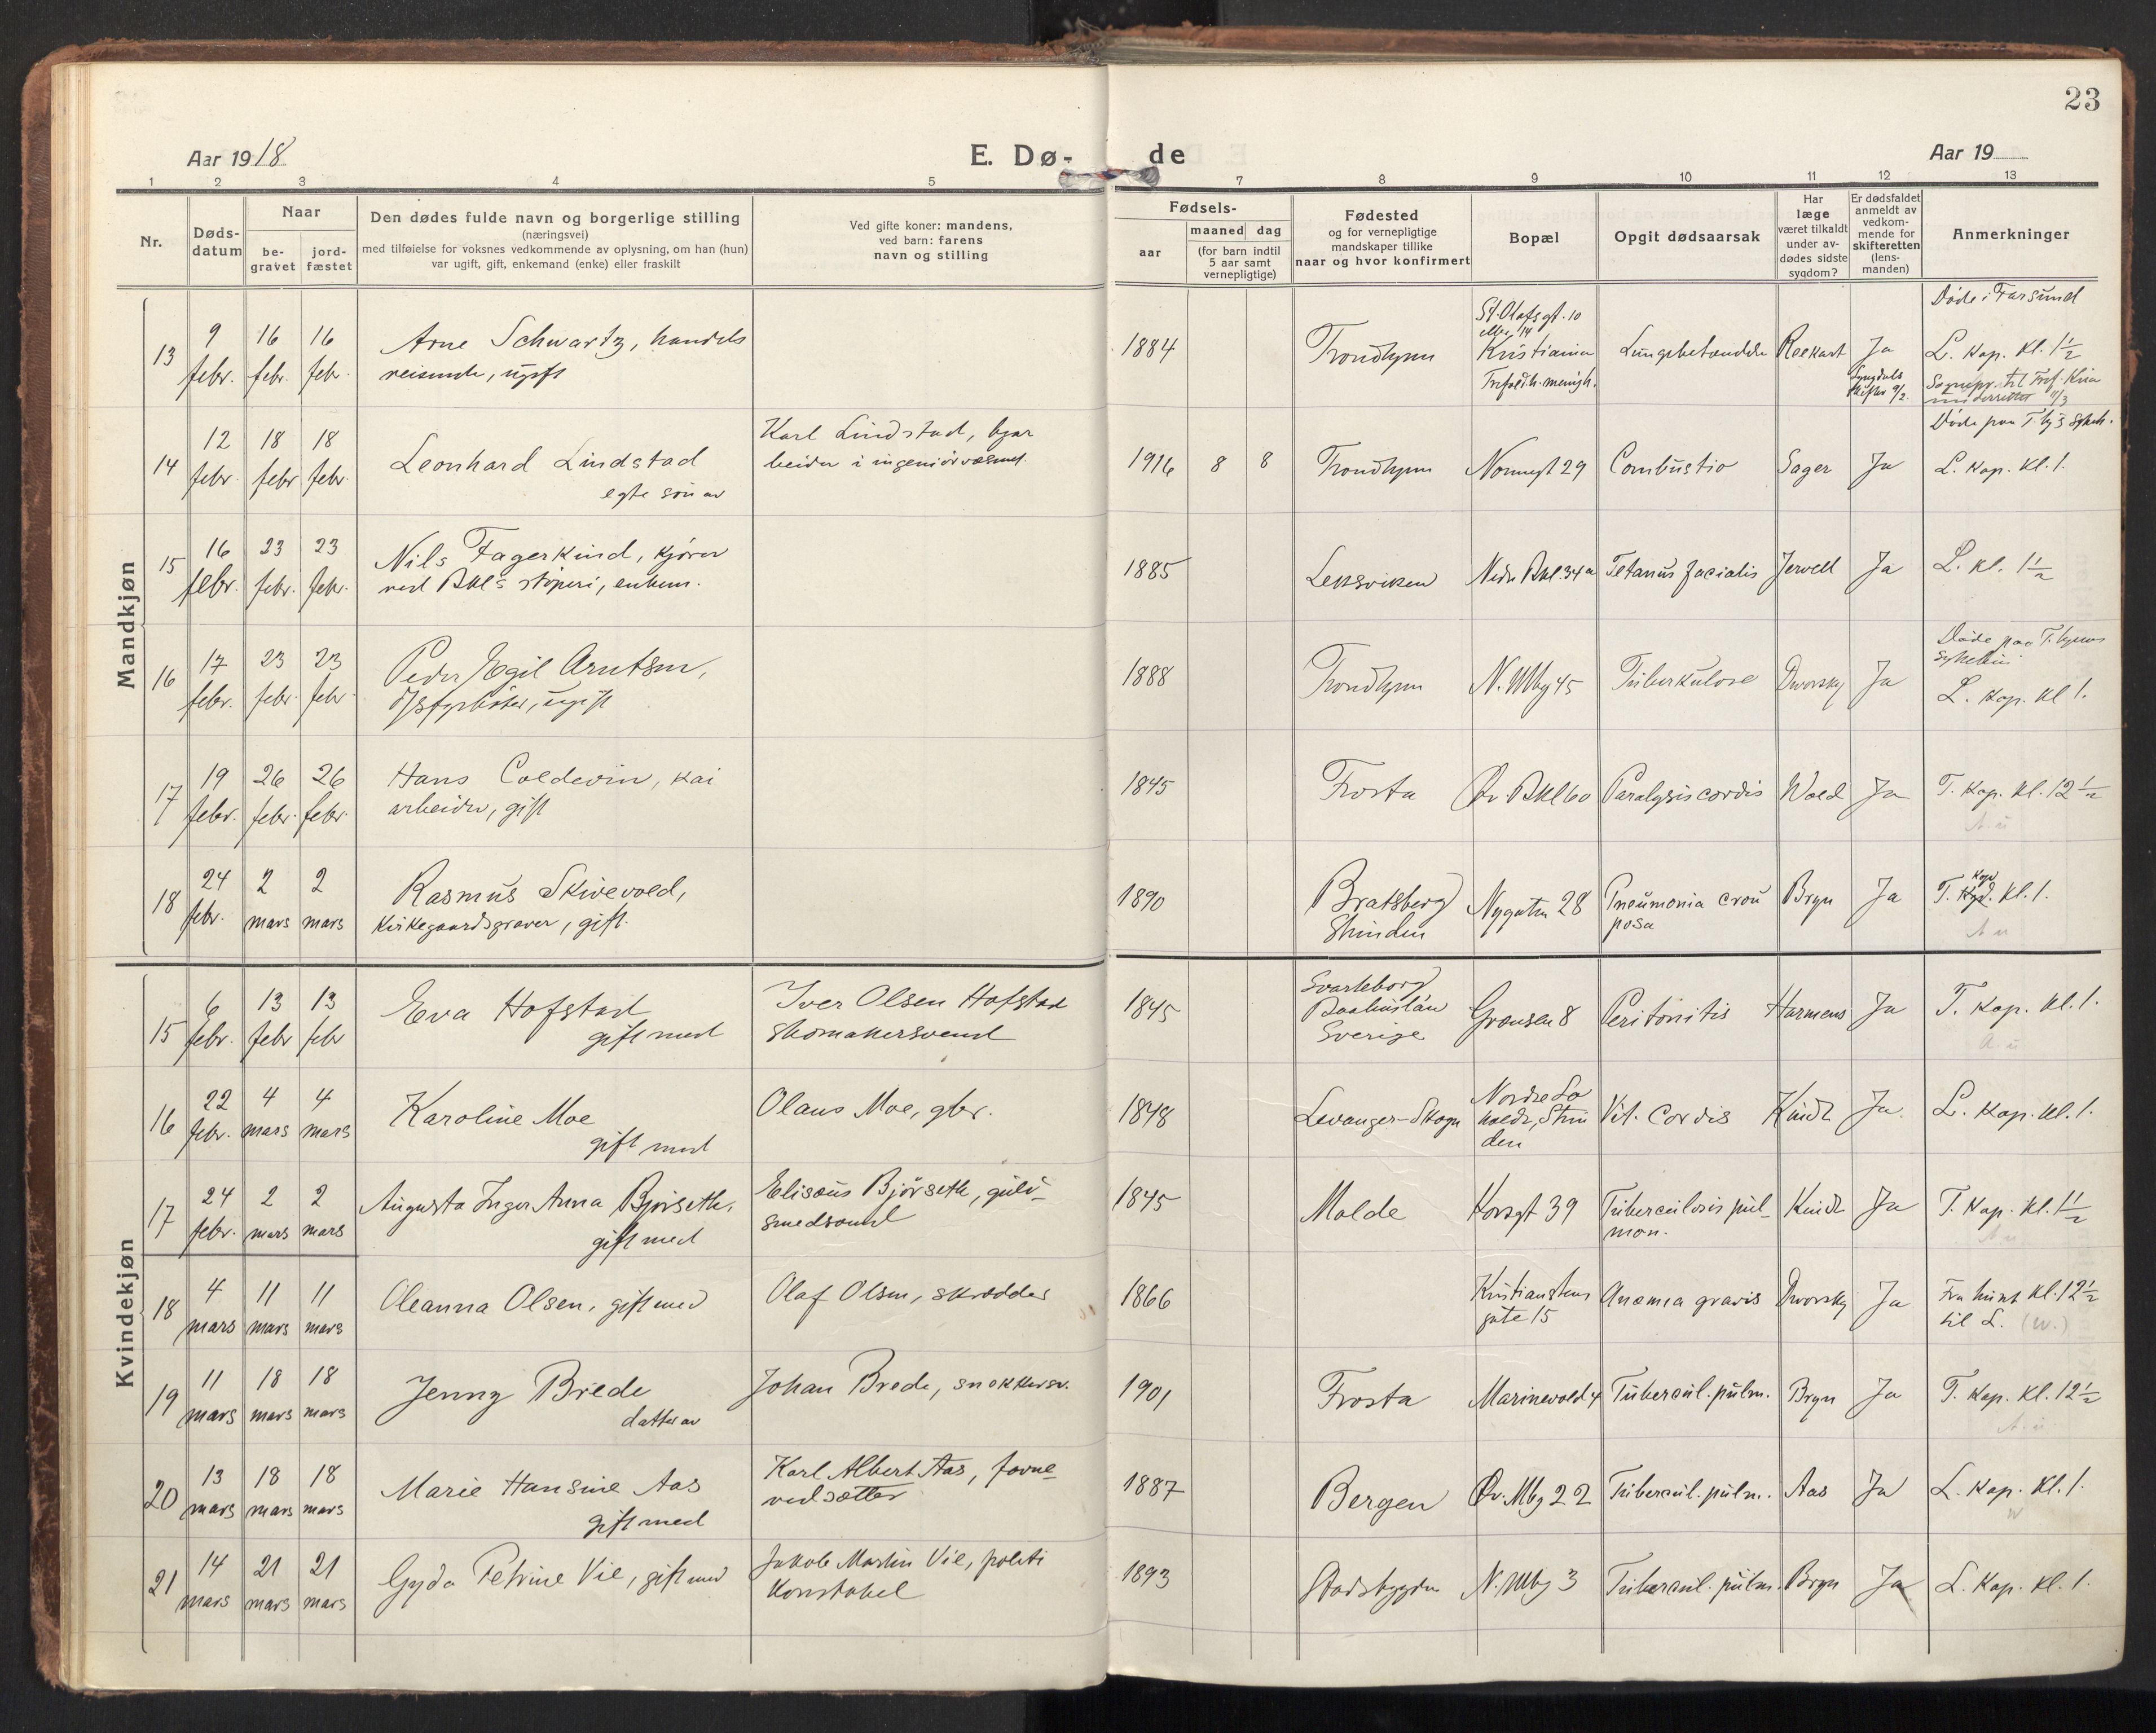 23
Aar 1918
E. Dø-
de
Aar 19
1 2 3 4 5 7 8 9 10 11 12 13
Nr.
Døds-
datum
Naar
be-
gravet
jord-
fæstet
Den dødes fulde navn og borgerlige stilling
(næringsvei)
med tilføielse for voksnes vedkommende av oplysning, om han (hun)
var ugift, gift, enkemand (enke) eller fraskilt
Ved gifte koner: mandens,
ved barn: farens
navn og stilling
Fødsels-
aar
maaned dag
(for barn indtil
5 aar samt
vernepligtige)
Fødested
og for vernepligtige
mandskaper tillike
naar og hvor konfirmert
Bopæl
Opgit dødsaarsak
Har
læge
været tilkaldt
under av-
dødes sidste
sygdom?
Er dødsfaldet
anmeldt av
vedkom-
mende for
skifteretten
(lens-
manden)
Anmerkninger
Mandkjøn
13
9 febr.
16 febr.
16 febr.
Arne Schwartz, handels
reisende, ugift
1884
Trondhjem
St. Olafsgt. 10
eller 14
Kristiania
Trefoldh. menigh.
Lungebetændelse
Ja
Døde i Farsund
L. Kap. Kl. 1½
14
12 febr.
18 febr.
18 febr.
Leonhard Lindstad
egte søn av
Karl Lindstad, byar
beider i ingeniørvæsnet.
1916 8 8
Trondhjem
Nonnegt 29
Combustio
Sager
Ja
Døde paa T.hj's sykeh.
L. Kap. Kl. 1.
15
16 febr.
23 febr.
23 febr.
Nils Fagerkind, kjører
ved Bkl's støperi, enkem.
1885
Leksviken
Nedr Bkl 34a
Tetanus facialis
Jervell
Ja
L. kl. 1½
16
17 febr.
23 febr.
23 febr.
Peder Egil Arntsen,
ugift
1888
Trondhjem
N. Mbg 45
Tuberkulose
Dworsky
Ja
Døde paa T.hjems
sykehus
L. Kap. Kl 1.
17
19 febr.
26 febr.
26 febr.
Hans Coldevin, kai
arbeider, gift
1845
Frosta
Øv. Bkl 60
Paralysis cordis
Wold
Ja
T. Kap. Kl. 12½
18
24 febr.
2 mars
2 mars
Rasmus Skivevold,
Kirkegaardsgraver, gift.
1890
Bratsberg
Strinden
Nygaten 28
Pneumonia crou
posa
Bryn
Ja
T. Kap. Kl. 1.
Kvindekjøn
15
6 febr.
13 febr
13 febr
Eva Hofstad
gift med
Iver Olsen Hofstad
skomakersvend
1845
Svarteborg
Baahuslän
Sverige
Grænsen 8
Peritonitis
Harmens
Ja
T. Kap. Kl. 1.
16
22 febr.
4 mars
4 mars
Karoline Moe
gift med
Olaus Moe, gbr.
1848
Levanger-Skogn
Vit. Cordis
Kindt
Ja.
L. Kap. Kl. 1.
17
24 febr.
2 mars
2 mars
Augusta Inger Anna Bjørseth,
gift med
Elisæus Bjørseth, guld-
smedsvend
1845
Molde
Korsgt 39
Tuberculosis pul-
mon.
Kindt
Ja
T. Kap. Kl. 1½
18
4 mars
11 mars
11 mars
Oleanna Olsen, gift med
Olaf Olsen, skrædder
1866
Kristiansten
gate 15
Anæmia gravis
Dworsky
Ja
Fra huset Kl. 12½
til L. (W.)
19
11 mars
18 mars
18 mars
Jenny Brede
datter av
Johan Brede, snekkersv.
1901
Frosta
Marinevold 4
Tubercul. pulm.
Bryn
Ja
T. Kap. Kl. 12½
20
13 mars
18 mars
18 mars
Marie Hansine Aas
gift med
Karl Albert Aas, forne-
1887
Bergen
Øv. Mbg 22
Tubercul. pulm.
Aas
Ja
L. Kap. Kl. 1.
W
21
14 mars
21 mars
21 mars
Gyda Petrine Vie, gift med
Jakob Martin Vie, politi
Konstabel
1893
Stadsbygden
N. Mbg 3
Tubercul. pulm.
Bryn
Ja
L. Kap. Kl. 1.